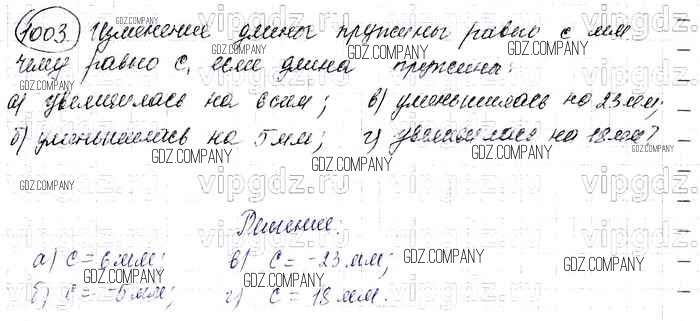 1003. Изменение длины пружины равно c мм
чему равно c, если длина пружины:
а) увеличилась на 6 мм; в) уменьшилась на 23 мм;
б) уменьшилась на 5 мм; г) увеличилась на 18 мм?
Решение:
а) c = 6 мм; в) c = -23 мм;
б) c = -5 мм; г) c = 18 мм.
GDZ.COMPANY
vipgdz.ru